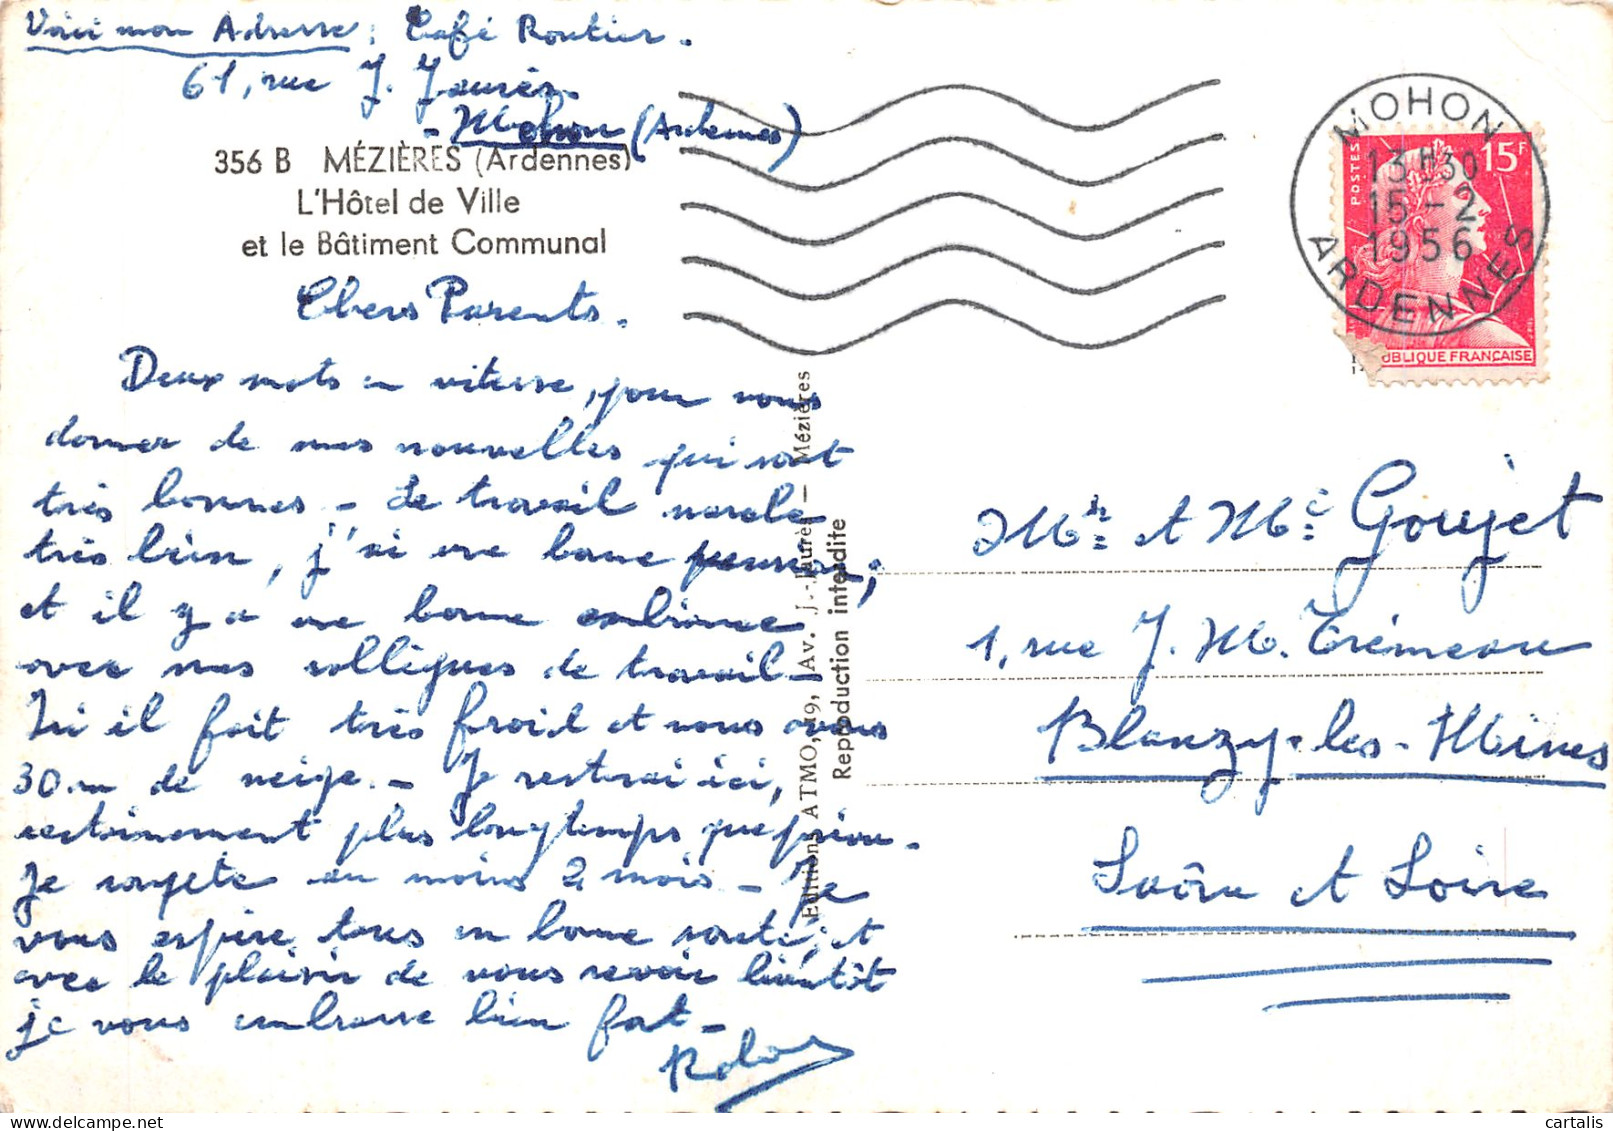 Voici mon Adresse : Café Routier.
61, rue J. Jaurès.
- Mohon (Ardennes)
356 B MÉZIÈRES (Ardennes)
L'Hôtel de Ville
et le Bâtiment Communal
Chers Parents.
Deux mots en vitesse, pour vous
donner de mes nouvelles qui sont
très bonnes - Le travail marche
très bien, j'ai une bonne pension,
et il y a une bonne ambiance
avec mes collègues de travail -
Ici il fait très froid et nous avons
30 cm de neige. - Je resterai ici,
certainement plus longtemps que prévu.
Je compte au moins 2 mois - Je
vous espère tous en bonne santé, et
avec le plaisir de vous revoir bientôt
je vous embrasse bien fort -
Editions ATMO, 19, Av. J.-Jaurès — Mézières
Reproduction interdite
MOHON
13H30
15-2
1956
ARDENNES
POSTES
15F
RÉPUBLIQUE FRANÇAISE
Mr et Mme Goujet
1, rue J. M. Trémeau
Blanzy-les-Mines
Saône et Loire
cartalis